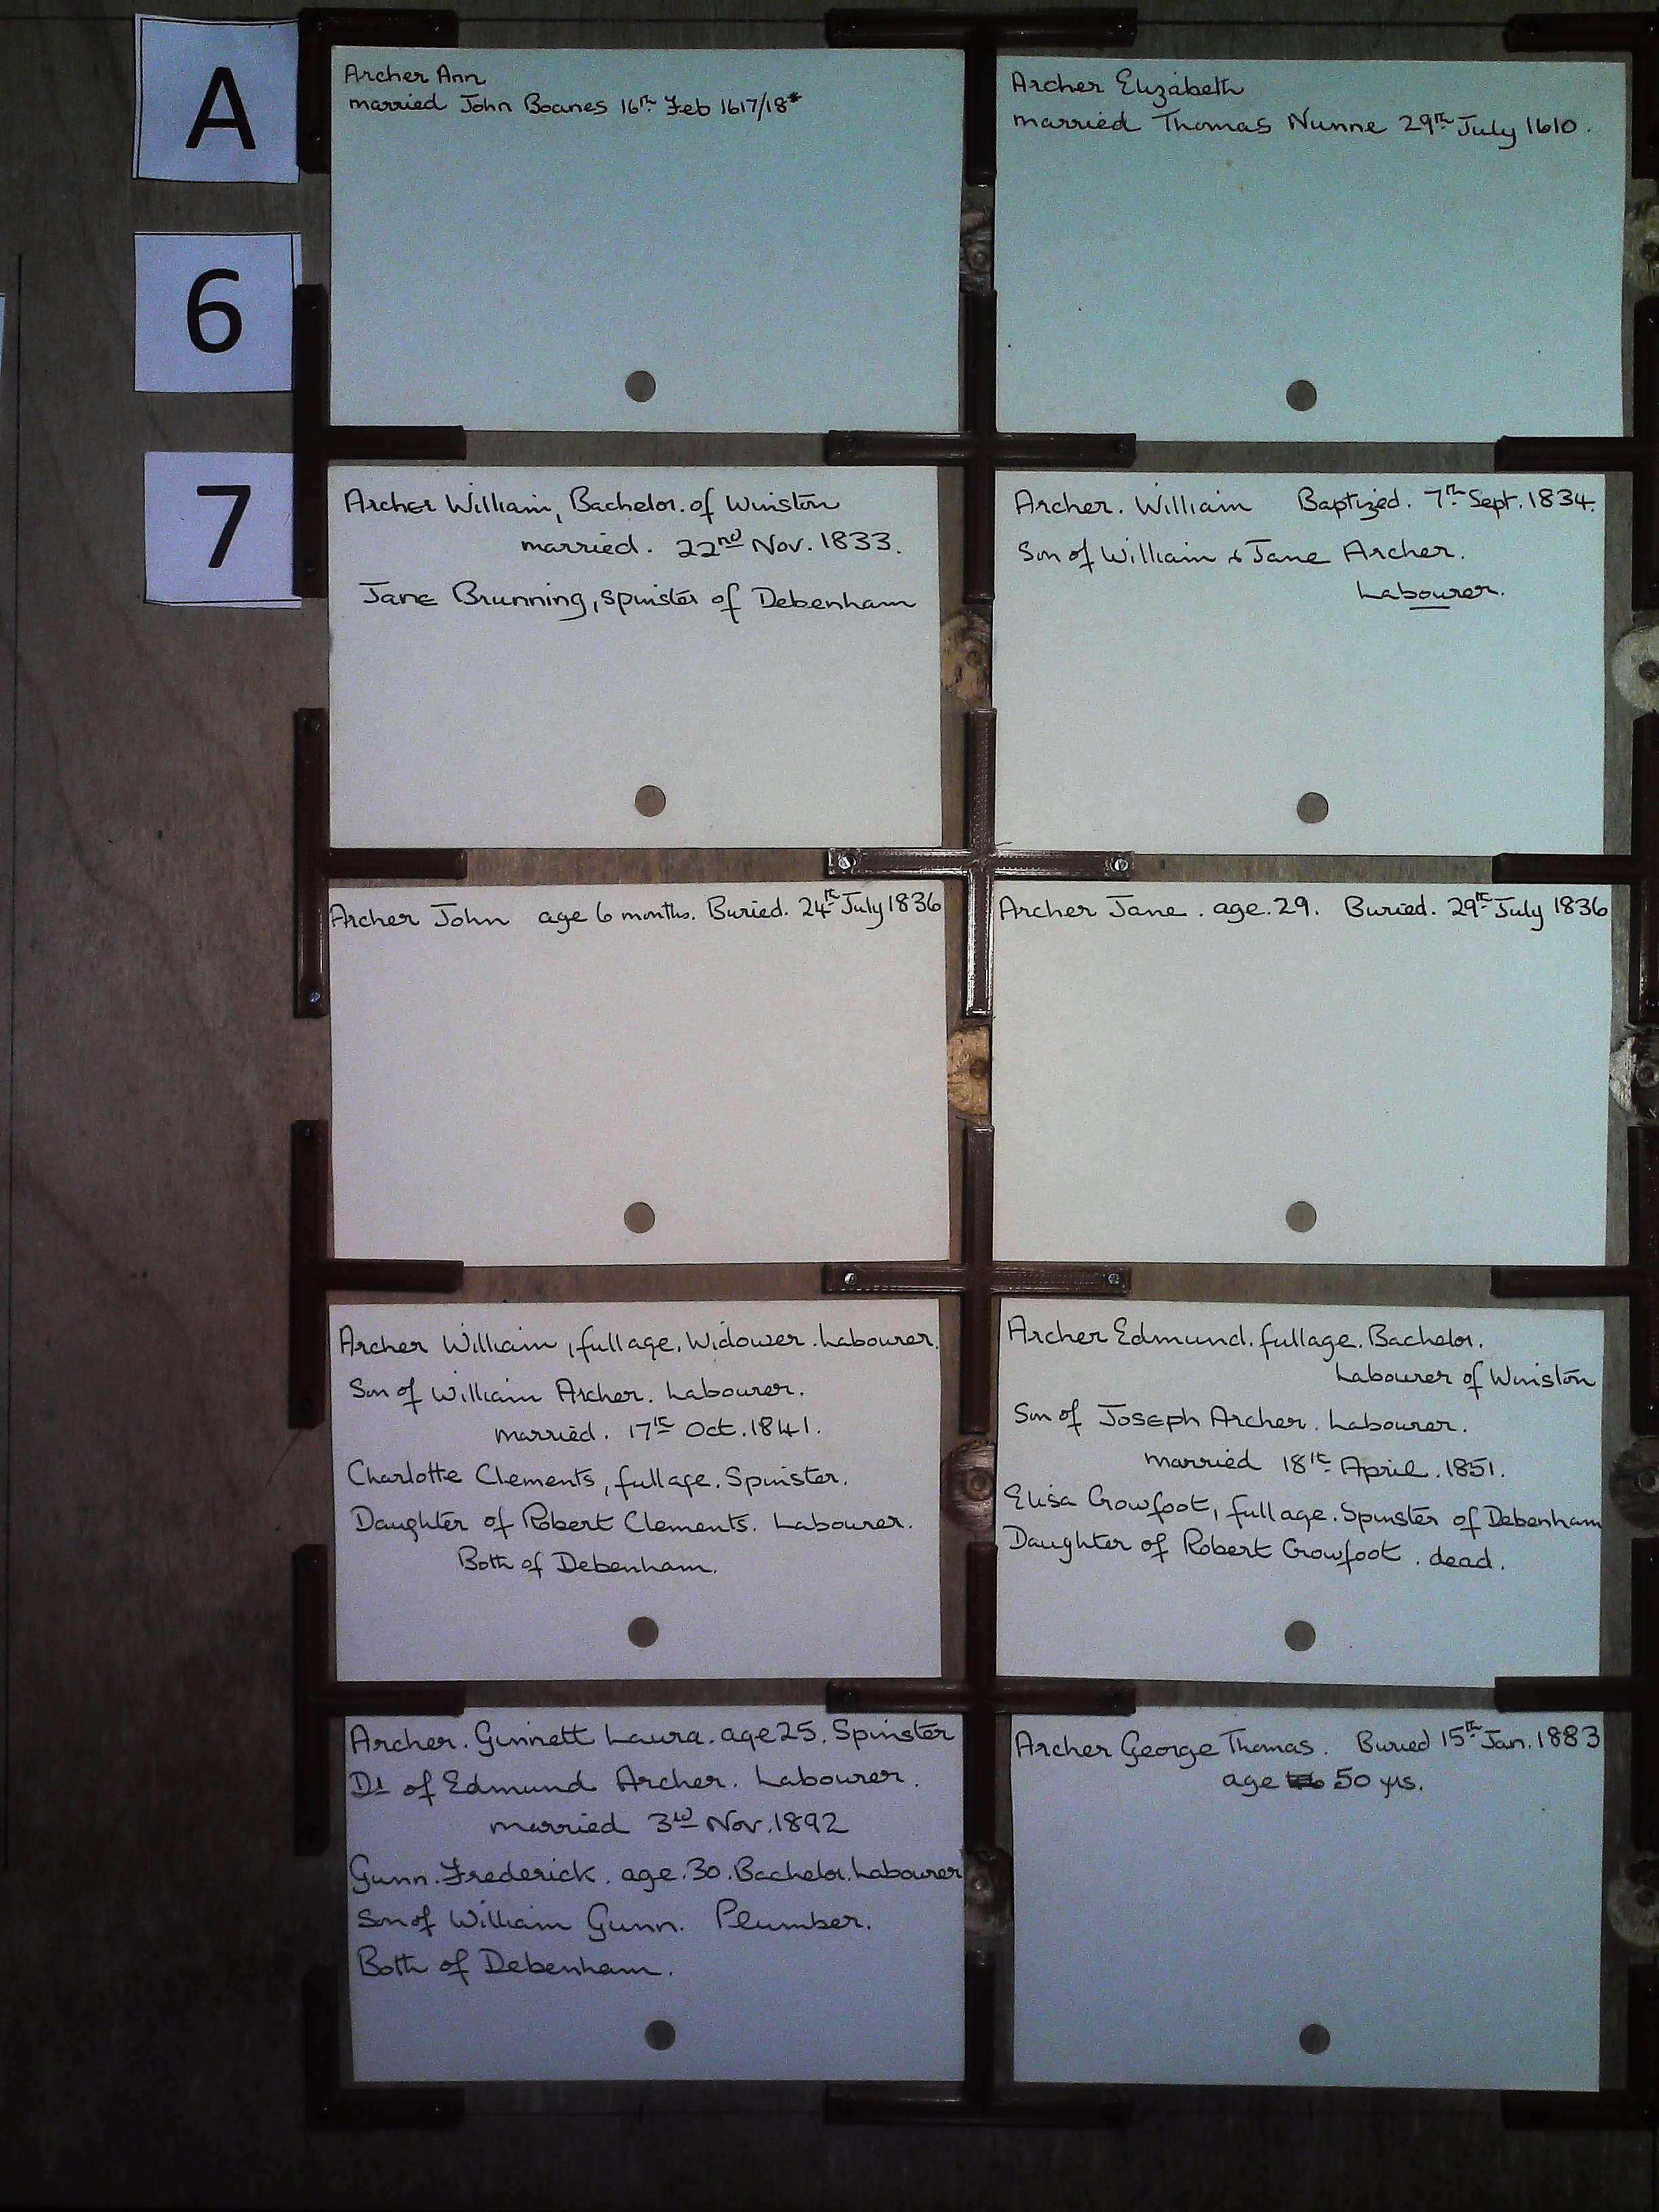 A
6
7
Archer Ann
married John Boanes 16th Feb 1617/18*
Archer Elizabeth
married Thomas Nunne 29th July 1610.
Archer William, Bachelor. of Winston
married. 22nd Nov. 1833.
Jane Brunning, spinster of Debenham
Archer. William Baptized. 7th Sept. 1834.
Son of William & Jane Archer.
Labourer.
Archer John age 6 months. Buried. 24th July 1836
Archer Jane. age. 29. Buried. 29th July 1836
Archer William, full age. Widower. Labourer.
Son of William Archer. Labourer.
married. 17th Oct. 1841.
Charlotte Clements, full age. Spinster.
Daughter of Robert Clements. Labourer.
Both of Debenham.
Archer Edmund. full age. Bachelor.
Labourer of Winston
Son of Joseph Archer. Labourer.
married 18th April. 1851.
Elisa Crowfoot, full age. Spinster of Debenham
Daughter of Robert Crowfoot. dead.
Archer. Ginnett Laura. age 25. Spinster
Dt of Edmund Archer. Labourer.
married 3rd Nov. 1892
Gunn. Frederick. age. 30. Bachelor. Labourer
Son of William Gunn. Plumber.
Both of Debenham.
Archer George Thomas. Buried 15th Jan. 1883
age 50 yrs.